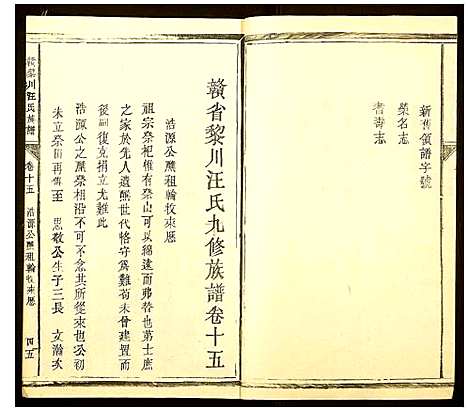 新舊領譜字號
榮名志
耆壽志
贛省黎川汪氏九修族譜卷十五
浩源公醮祖輪收來歷
祖宗祭祀惟有祭山可以綿遠而弗替也第士庶
之家於先人遺醮世代恪守爲難苟未曾建置而
後嗣復克捐立尤難此
浩源公之醮祭相沿不可不念其所從來也公初
未立祭田再傳至 思敬公生子三長 文瀚次
贛黎川汪氏族譜 卷十五 浩源公醮祖輪收來歷 四五